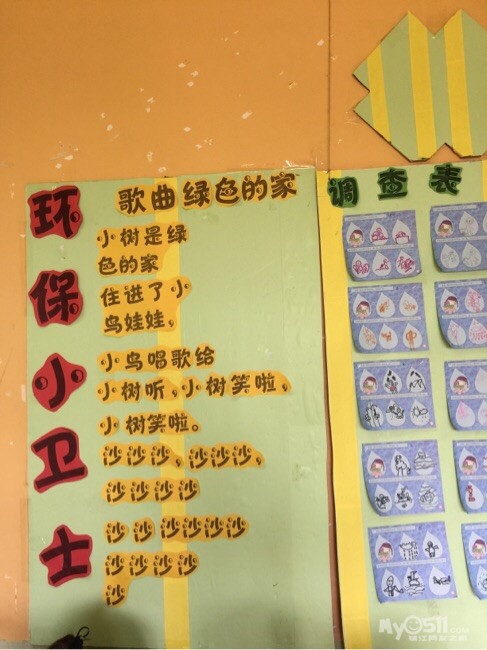 环保小卫士
歌曲绿色的家
小树是绿
色的家
住进了小
鸟娃娃,
小鸟唱歌给
小树听,小树笑啦,
小树笑啦。
沙沙沙,沙沙沙,
沙沙沙沙
沙沙沙沙沙沙
沙沙沙沙
沙
调查表
My0511.com